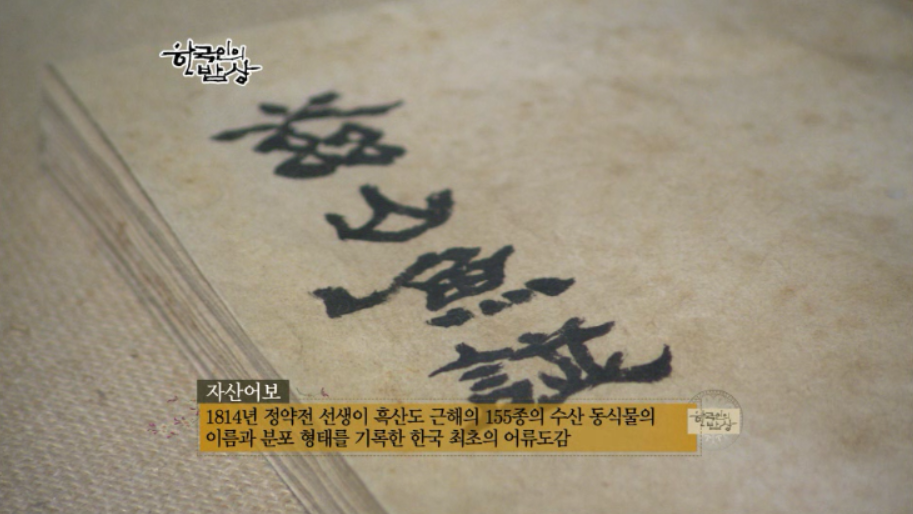 한국인의
밥상
玆山魚譜
자산어보
1814년 정약전 선생이 흑산도 근해의 155종의 수산 동식물의
이름과 분포 형태를 기록한 한국 최초의 어류도감
한국인의
밥상